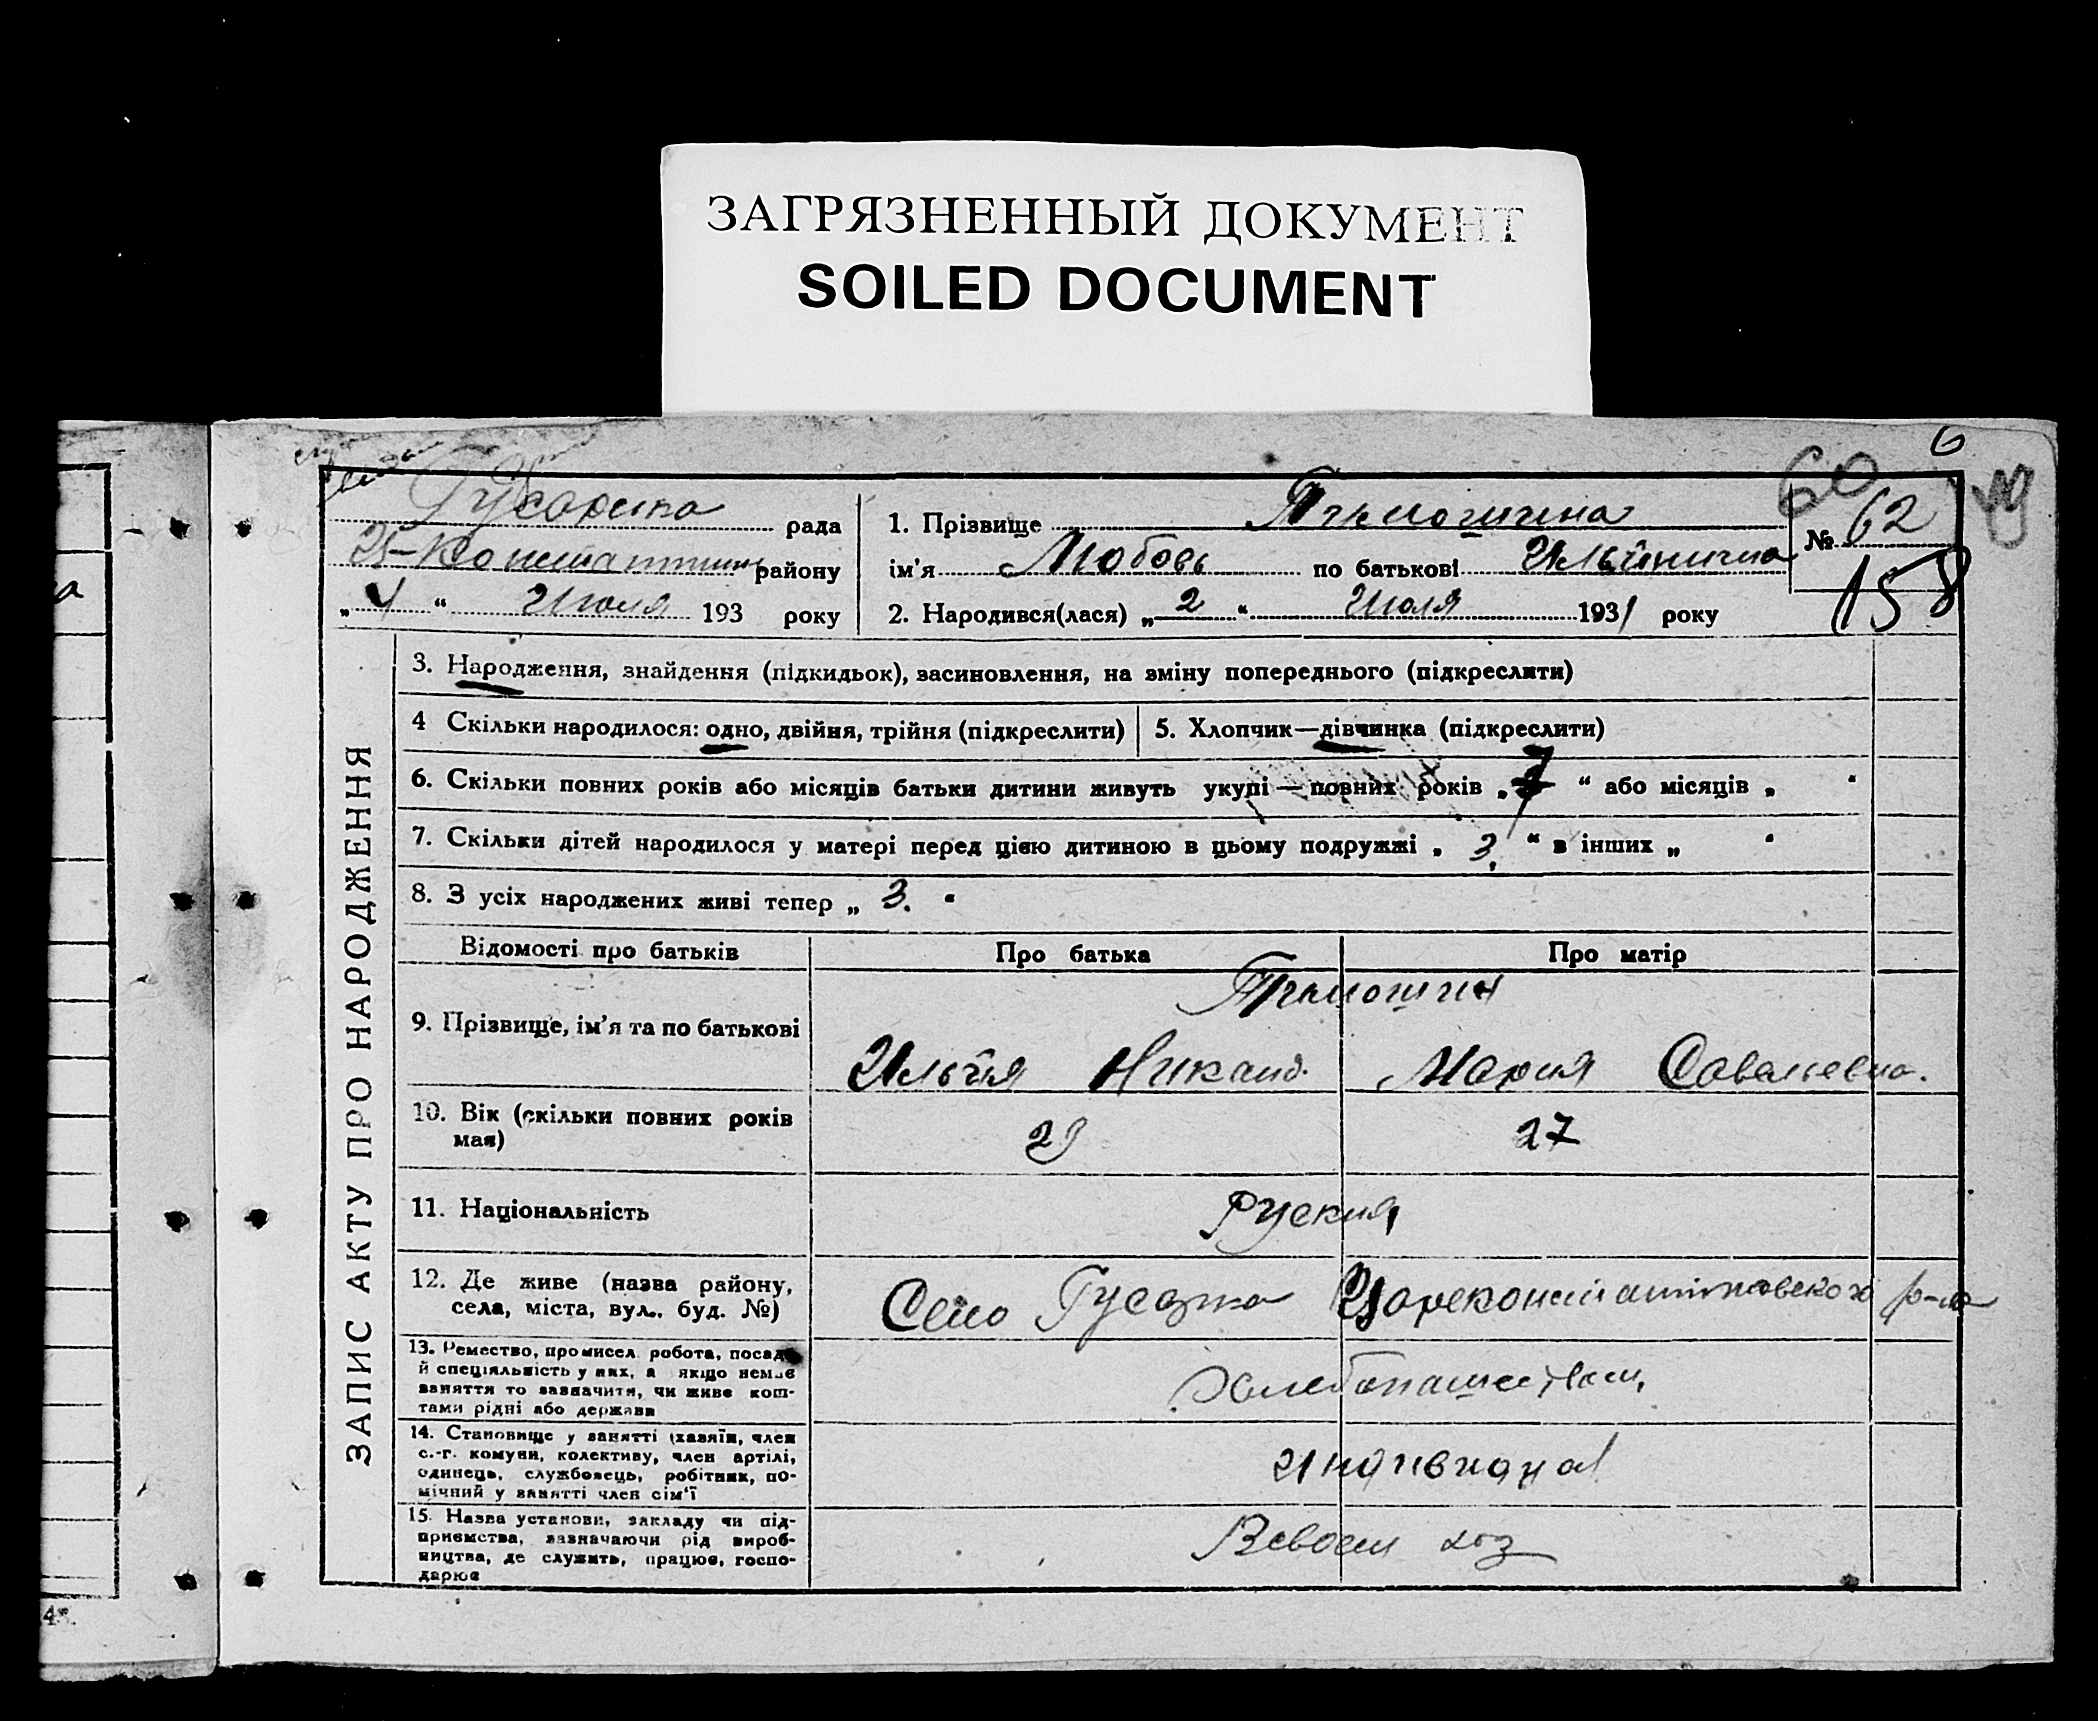 ЗАГРЯЗНЕННЫЙ ДОКУМЕНТ
SOILED DOCUMENT
6
60
№ 62
158
Гусаρина рада
району
„ 4 “ Июля 193 року
1. Прізвище Тимошина
ім'я Любовь по батькові Ильинична
2. Народився(лася) „ 2 “ Июля 1931 року
ЗАПИС АКТУ ПРО НАРОДЖЕННЯ
3. Народження, знайдення (підкидьок), засиновлення, на зміну попереднього (підкреслити)
4 Скільки народилося: одно, двійня, трійня (підкреслити)
5. Хлопчик—дівчинка (підкреслити)
6. Скільки повних років або місяців батьки дитини живуть укупі — повних років „ 7 “ або місяців „ “
7. Скільки дітей народилося у матері перед цією дитиною в цьому подружжі „ 3. “ в інших „ “
8. З усіх народжених живі тепер „ 3. “
Відомості про батьків
Про батька
Про матір
9. Прізвище, ім'я та по батькові
Тимошин
Илья Миканд.
Мария Савельевна.
10. Вік (скільки повних років
має)
29
27
11. Національність
Руския
12. Де живе (назва району,
села, міста, вул. буд. №)
Село Гусарка Цареконстантиновского р-на
13. Ремество, промисел робота, посада
й спеціяльність у них, а якщо немає
заняття то зазначити, чи живе кош-
тами рідні або держави
Хлебопашеством
14. Становище у занятті (хазяїн, член
с.-г. комуни, колективу, член артілі,
одинець, службовець, робітник, по-
мічний у занятті член сім'ї
Индивидуал
15. Назва установи, закладу чи під-
приємства, зазначаючи рід вироб-
ництва, де служить, працює, госпо-
дарює
Всвоем хоз